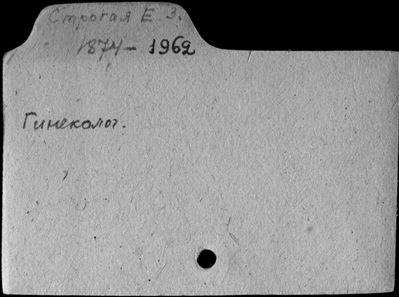 Строгая Е. З.
1874 - 1962
Гинеколог.